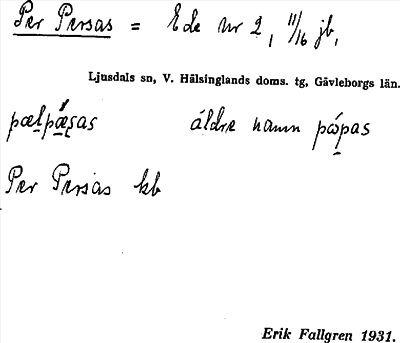 Per Persas = Ede nr 2, 11/16 jb,
Ljusdals sn, V. Hälsinglands doms. tg, Gävleborgs län.
pælpǽsas äldre namn pápas
Per Persas kb
Erik Fallgren 1931.